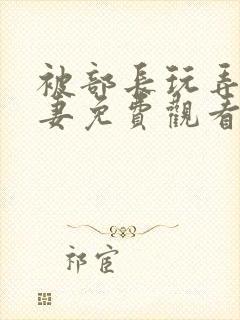 被部長玩弄
妻免費觀看
祁宦